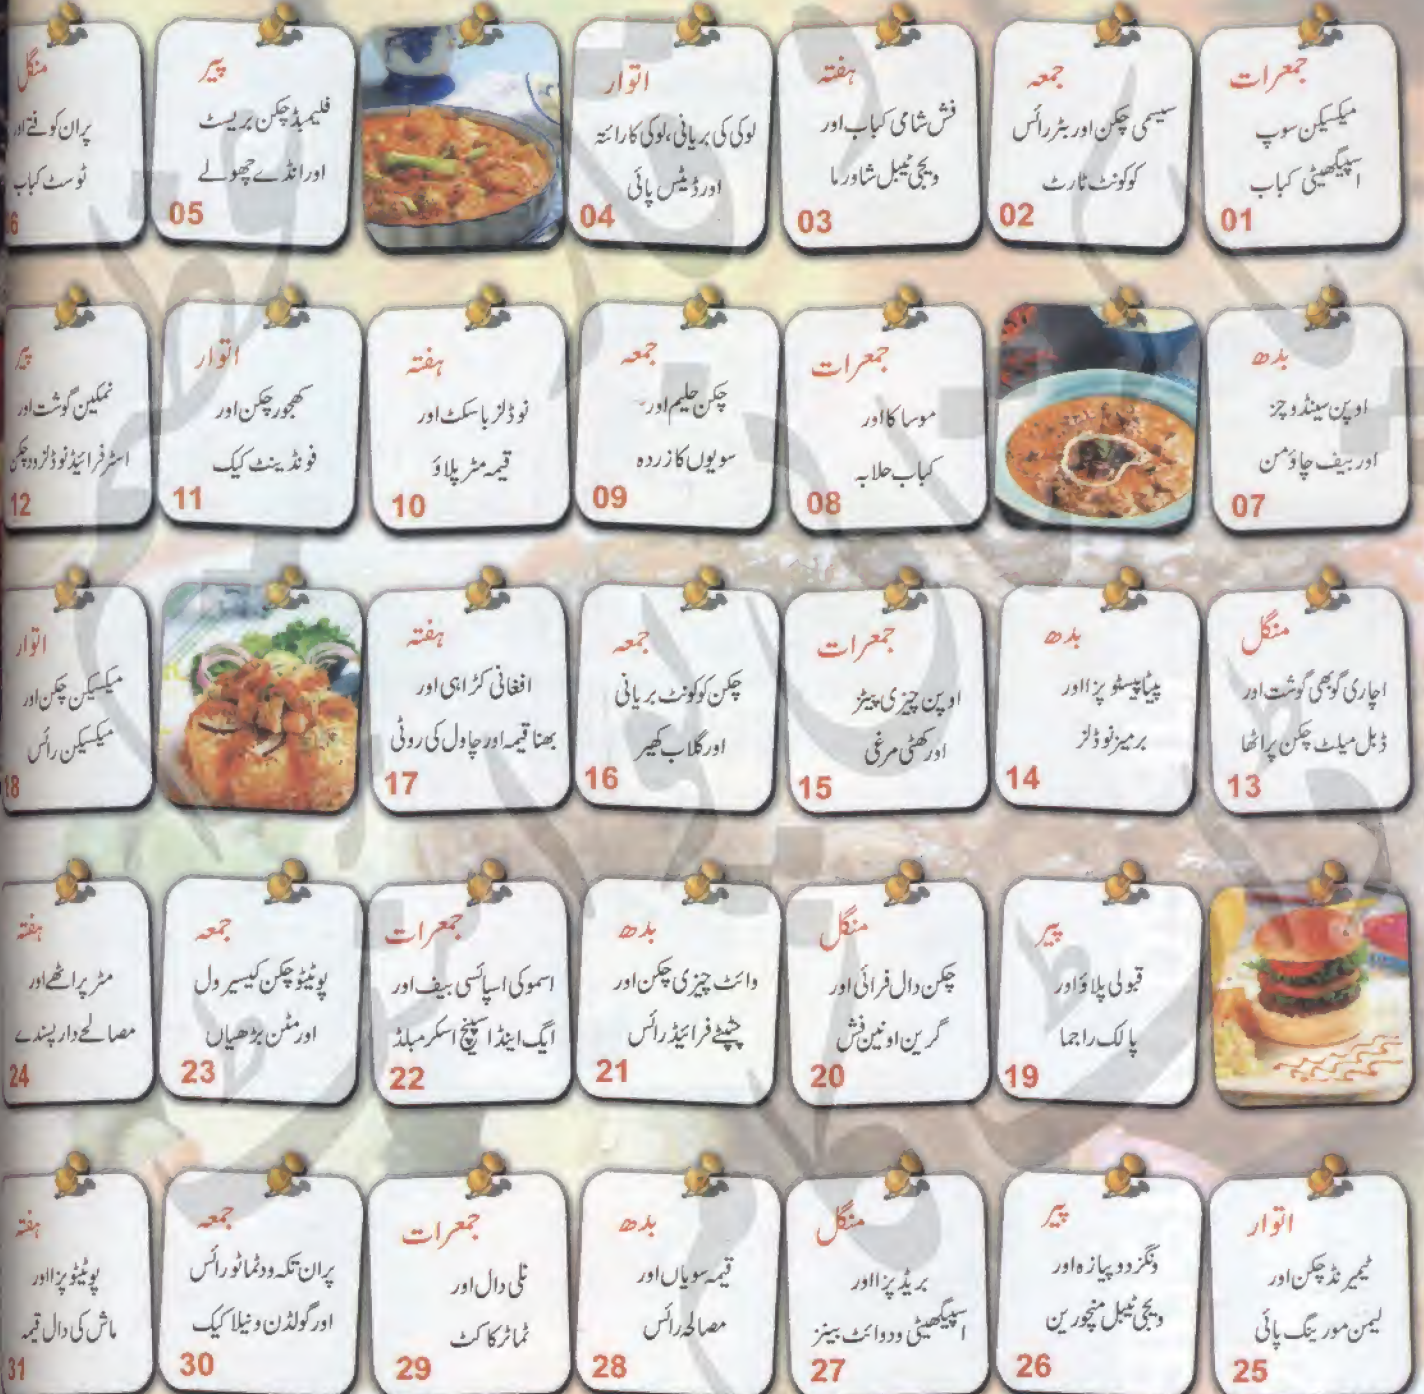 جمعرات
میکسیکن سوپ
اسپیگھیٹی کباب
01
جمعہ
سیسمی چکن اور بٹر رائس
کوکونٹ ٹارٹ
02
ہفتہ
فش شامی کباب اور
ویجی ٹیبل شاورما
03
اتوار
لوکی کی بریانی، لوکی کا رائتہ
اور ڈیٹس پائی
04
پیر
فلیمبڈ چکن بریسٹ
اور انڈے چھولے
05
منگل
پران کوفتے اور
ٹوسٹ کباب
6
بدھ
اوپن سینڈوچز
اور بیف چاؤمن
07
جمعرات
موساکا اور
کباب حلابہ
08
جمعہ
چکن حلیم اور
سویوں کا زردہ
09
ہفتہ
نوڈلز باسکٹ اور
قیمہ مٹر پلاؤ
10
اتوار
کھجور چکن اور
فونڈینٹ کیک
11
پیر
نمکین گوشت اور
اسٹر فرائیڈ نوڈلز ود چکن
12
منگل
اچاری گوبھی گوشت اور
ڈبل میلٹ چکن پراٹھا
13
بدھ
پیٹا پیسٹو پزا اور
برمیز نوڈلز
14
جمعرات
اوپن چیزی پیٹز
اور کھٹی مرغی
15
جمعہ
چکن کوکونٹ بریانی
اور گلاب کھیر
16
ہفتہ
افغانی کڑاہی اور
بھنا قیمہ اور چاول کی روٹی
17
اتوار
میکسیکن چکن اور
میکسیکن رائس
18
پیر
قبولی پلاؤ اور
پالک راجما
19
منگل
چکن دال فرائی اور
گرین اونین فش
20
بدھ
وائٹ چیزی چکن اور
چٹپٹے فرائیڈ رائس
21
جمعرات
اسموکی اسپائسی بیف اور
ایگ اینڈ اسپنچ اسکرمبلڈ
22
جمعہ
پوٹیٹو چکن کیسیرول
اور مٹن بڑھیاں
23
ہفتہ
مٹر پراٹھے اور
مصالحے دار پسندے
24
اتوار
ٹیمرنڈ چکن اور
لیمن مورینگ پائی
25
پیر
ونگز دوپیازہ اور
ویجی ٹیبل منچورین
26
منگل
بریڈ پزا اور
اسپیگھیٹی ود وائٹ بینز
27
بدھ
قیمہ سویاں اور
مصالحہ رائس
28
جمعرات
نلی دال اور
ٹماٹر کا کٹ
29
جمعہ
پران تکہ ود ٹماٹو رائس
اور گولڈن ونیلا کیک
30
ہفتہ
پوٹیٹو پزا اور
ماش کی دال قیمہ
31